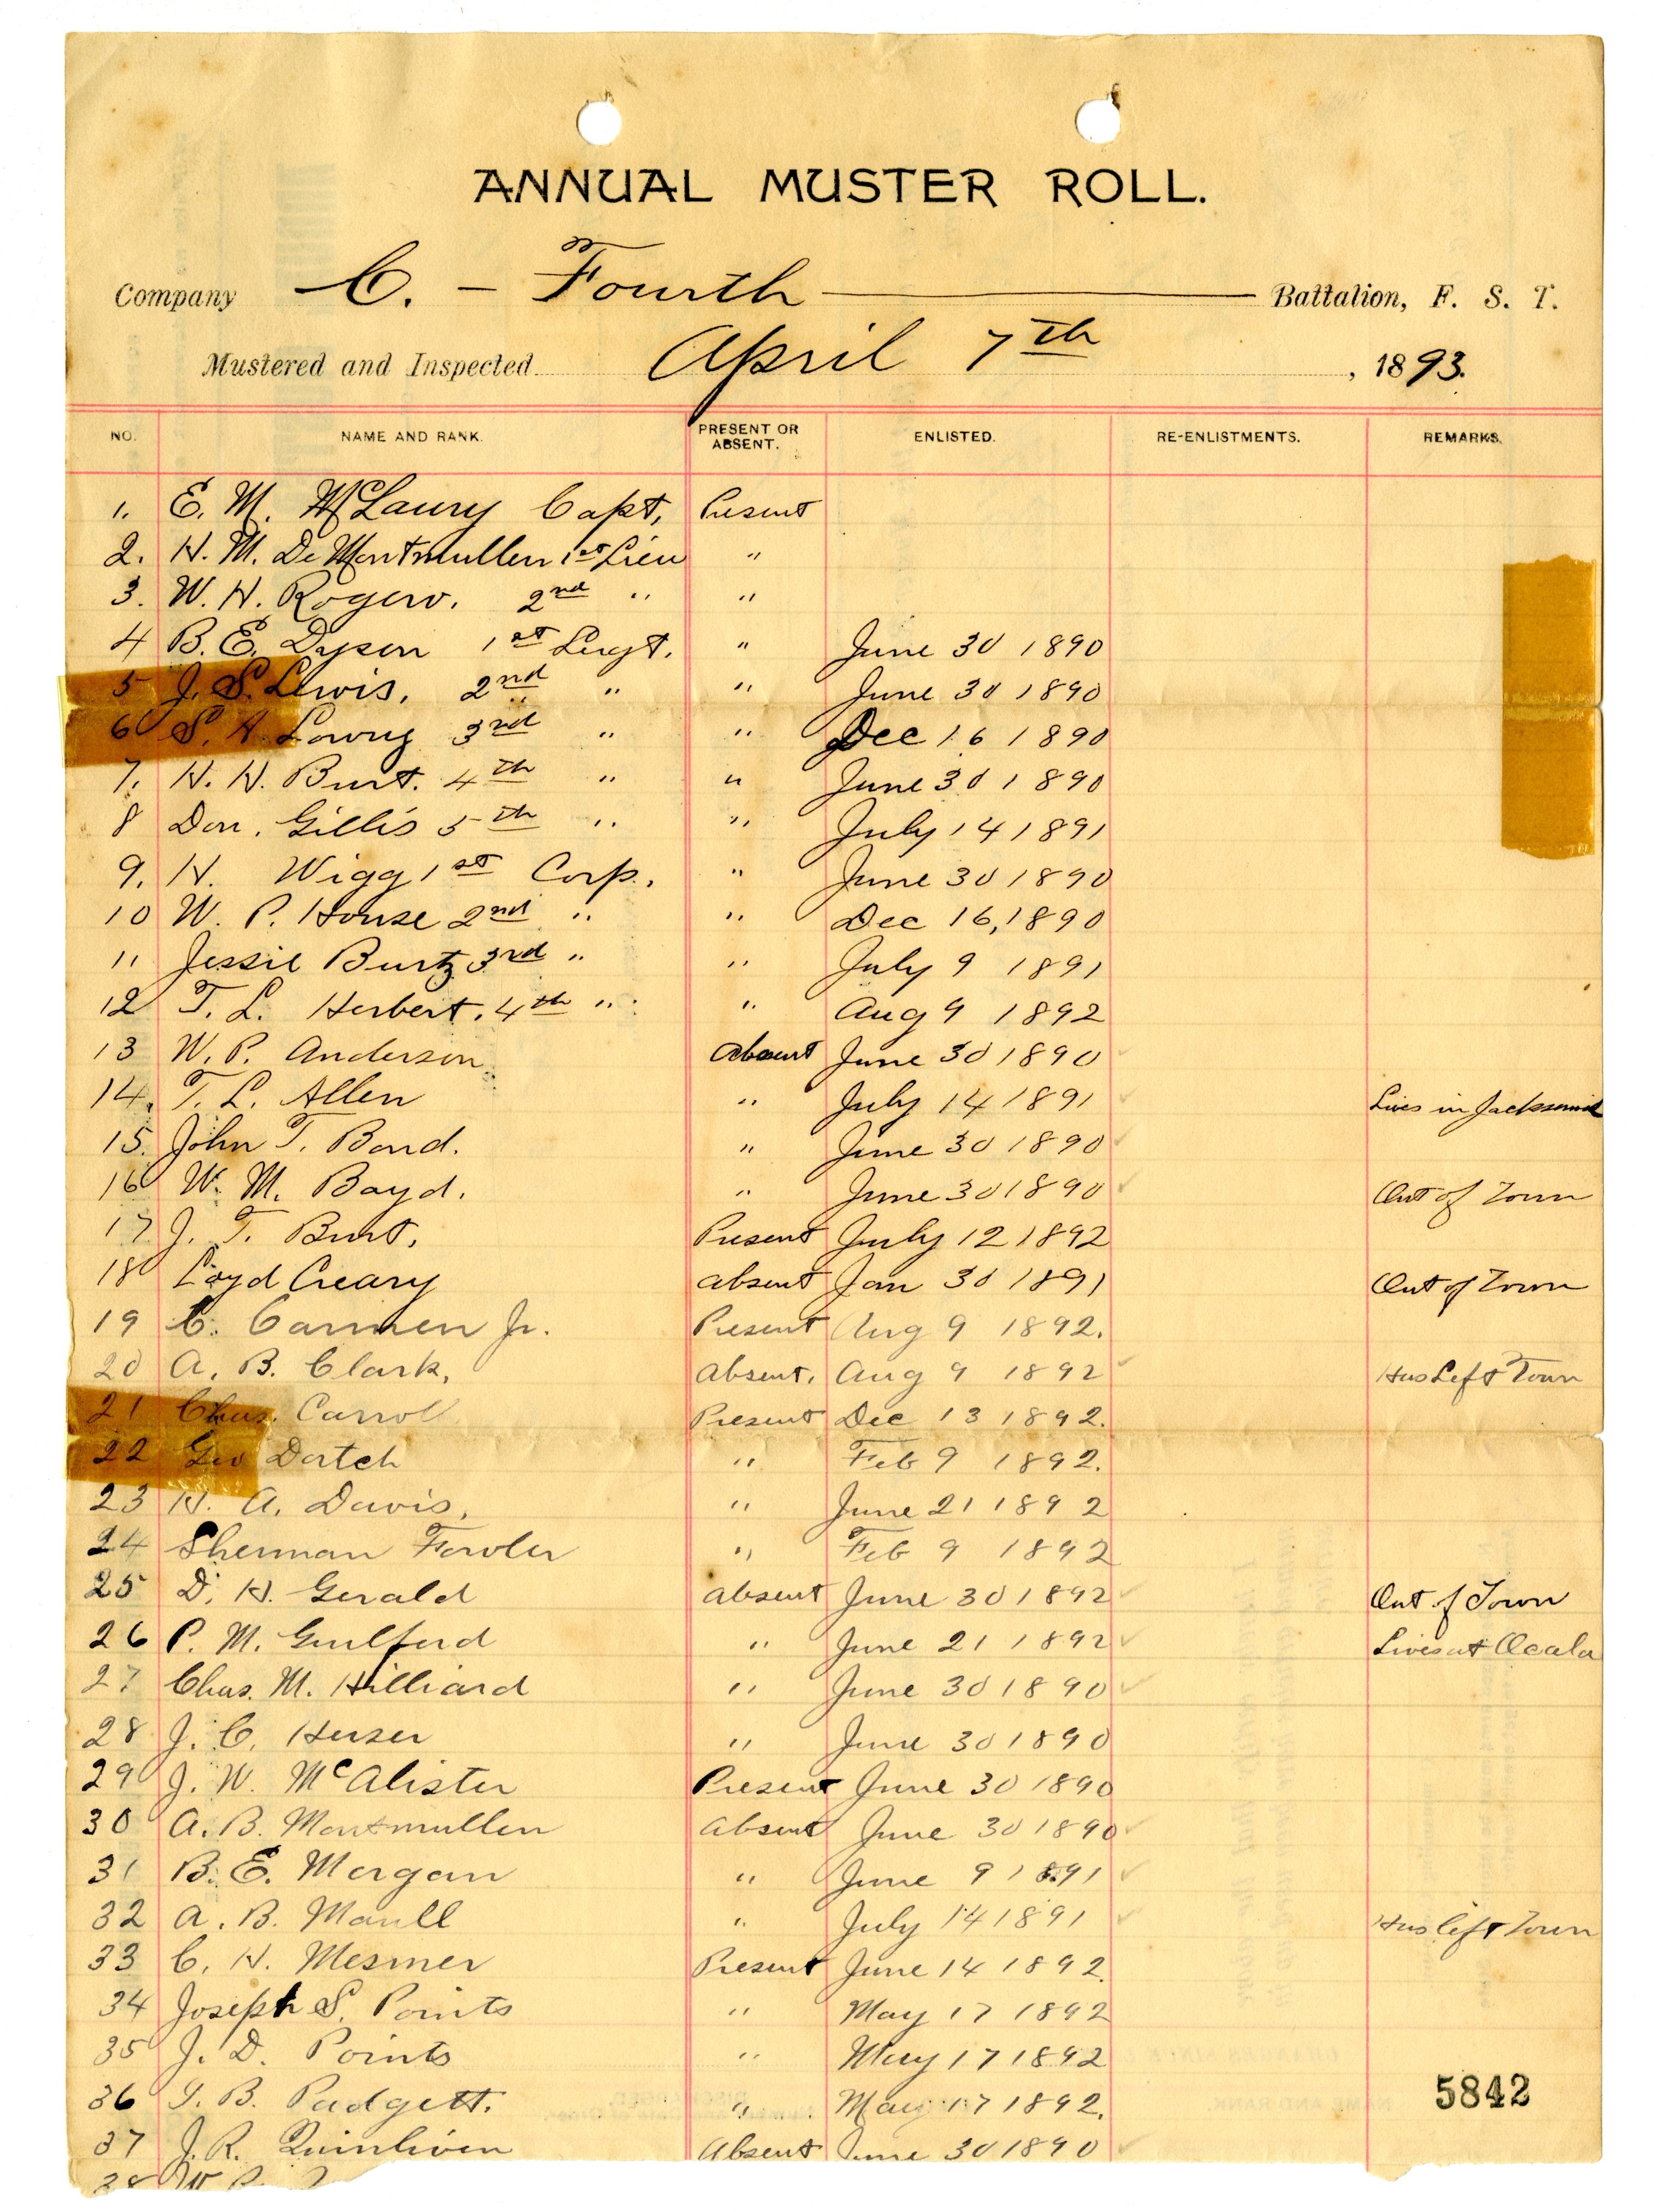 ANNUAL MUSTER ROLL.
Company C. – Fourth Battalion, F. S. T.
Mustered and Inspected April 7th, 1893.
NO. NAME AND RANK. PRESENT OR ABSENT. ENLISTED. RE-ENLISTMENTS. REMARKS.
1. E. M. McLaury Capt, Present
2. H. M. DeMontmullen 1st Lieu "
3. W. H. Rogers. 2nd " "
4 B. E. Dyson 1st Sergt. " June 30 1890
5 J. S. Lewis, 2nd " " June 30 1890
6 S. A. Lowry 3rd " " Dec 16 1890
7. H. H. Burt. 4th " " June 30 1890
8 Don. Gillis 5th " " July 14 1891
9. H. Wigg 1st Corp. " June 30 1890
10 W. P. House 2nd " " Dec 16, 1890
11 Jessie Burtz 3rd " " July 9 1891
12 T. L. Herbert. 4th " " Aug 9 1892
13 W. P. Anderson Absent June 30 1890
14. T. L. Allen " July 14 1891 Lives in Jacksonvil
15. John T. Bond. " June 30 1890
16 W. M. Boyd. " June 30 1890 Out of Town
17 J. T. Burt. Present July 12 1892
18 Loyd Creary absent Jan 30 1891 Out of Town
19 C. Carmen Jr. Present Aug 9 1892.
20 A. B. Clark, absent, Aug 9 1892 Has Left Town
21 Chas. Carroll Present Dec 13 1892.
22 Geo Dortch " Feb 9 1892.
23 H. A. Davis, " June 21 1892
24 Sherman Fowler " Feb 9 1892
25 D. H. Gerald absent June 30 1892 Out of Town
26 P. M. Guilford " June 21 1892 Lives at Ocala
27 Chas. M. Hilliard " June 30 1890
28 J. C. Herser " June 30 1890
29 J. W. McAlister Present June 30 1890
30 A. B. Montmullen absent June 30 1890
31 B. E. Morgan " June 9 1891
32 A. B. Maull " July 14 1891 Has left Town
33 C. H. Mesmer Present June 14 1892.
34 Joseph S. Points " May 17 1892
35 J. D. Points " May 17 1892
36 J. B. Padgett. " May 17 1892.
5842
37 J. R. Quinliven Absent June 30 1890
38 W